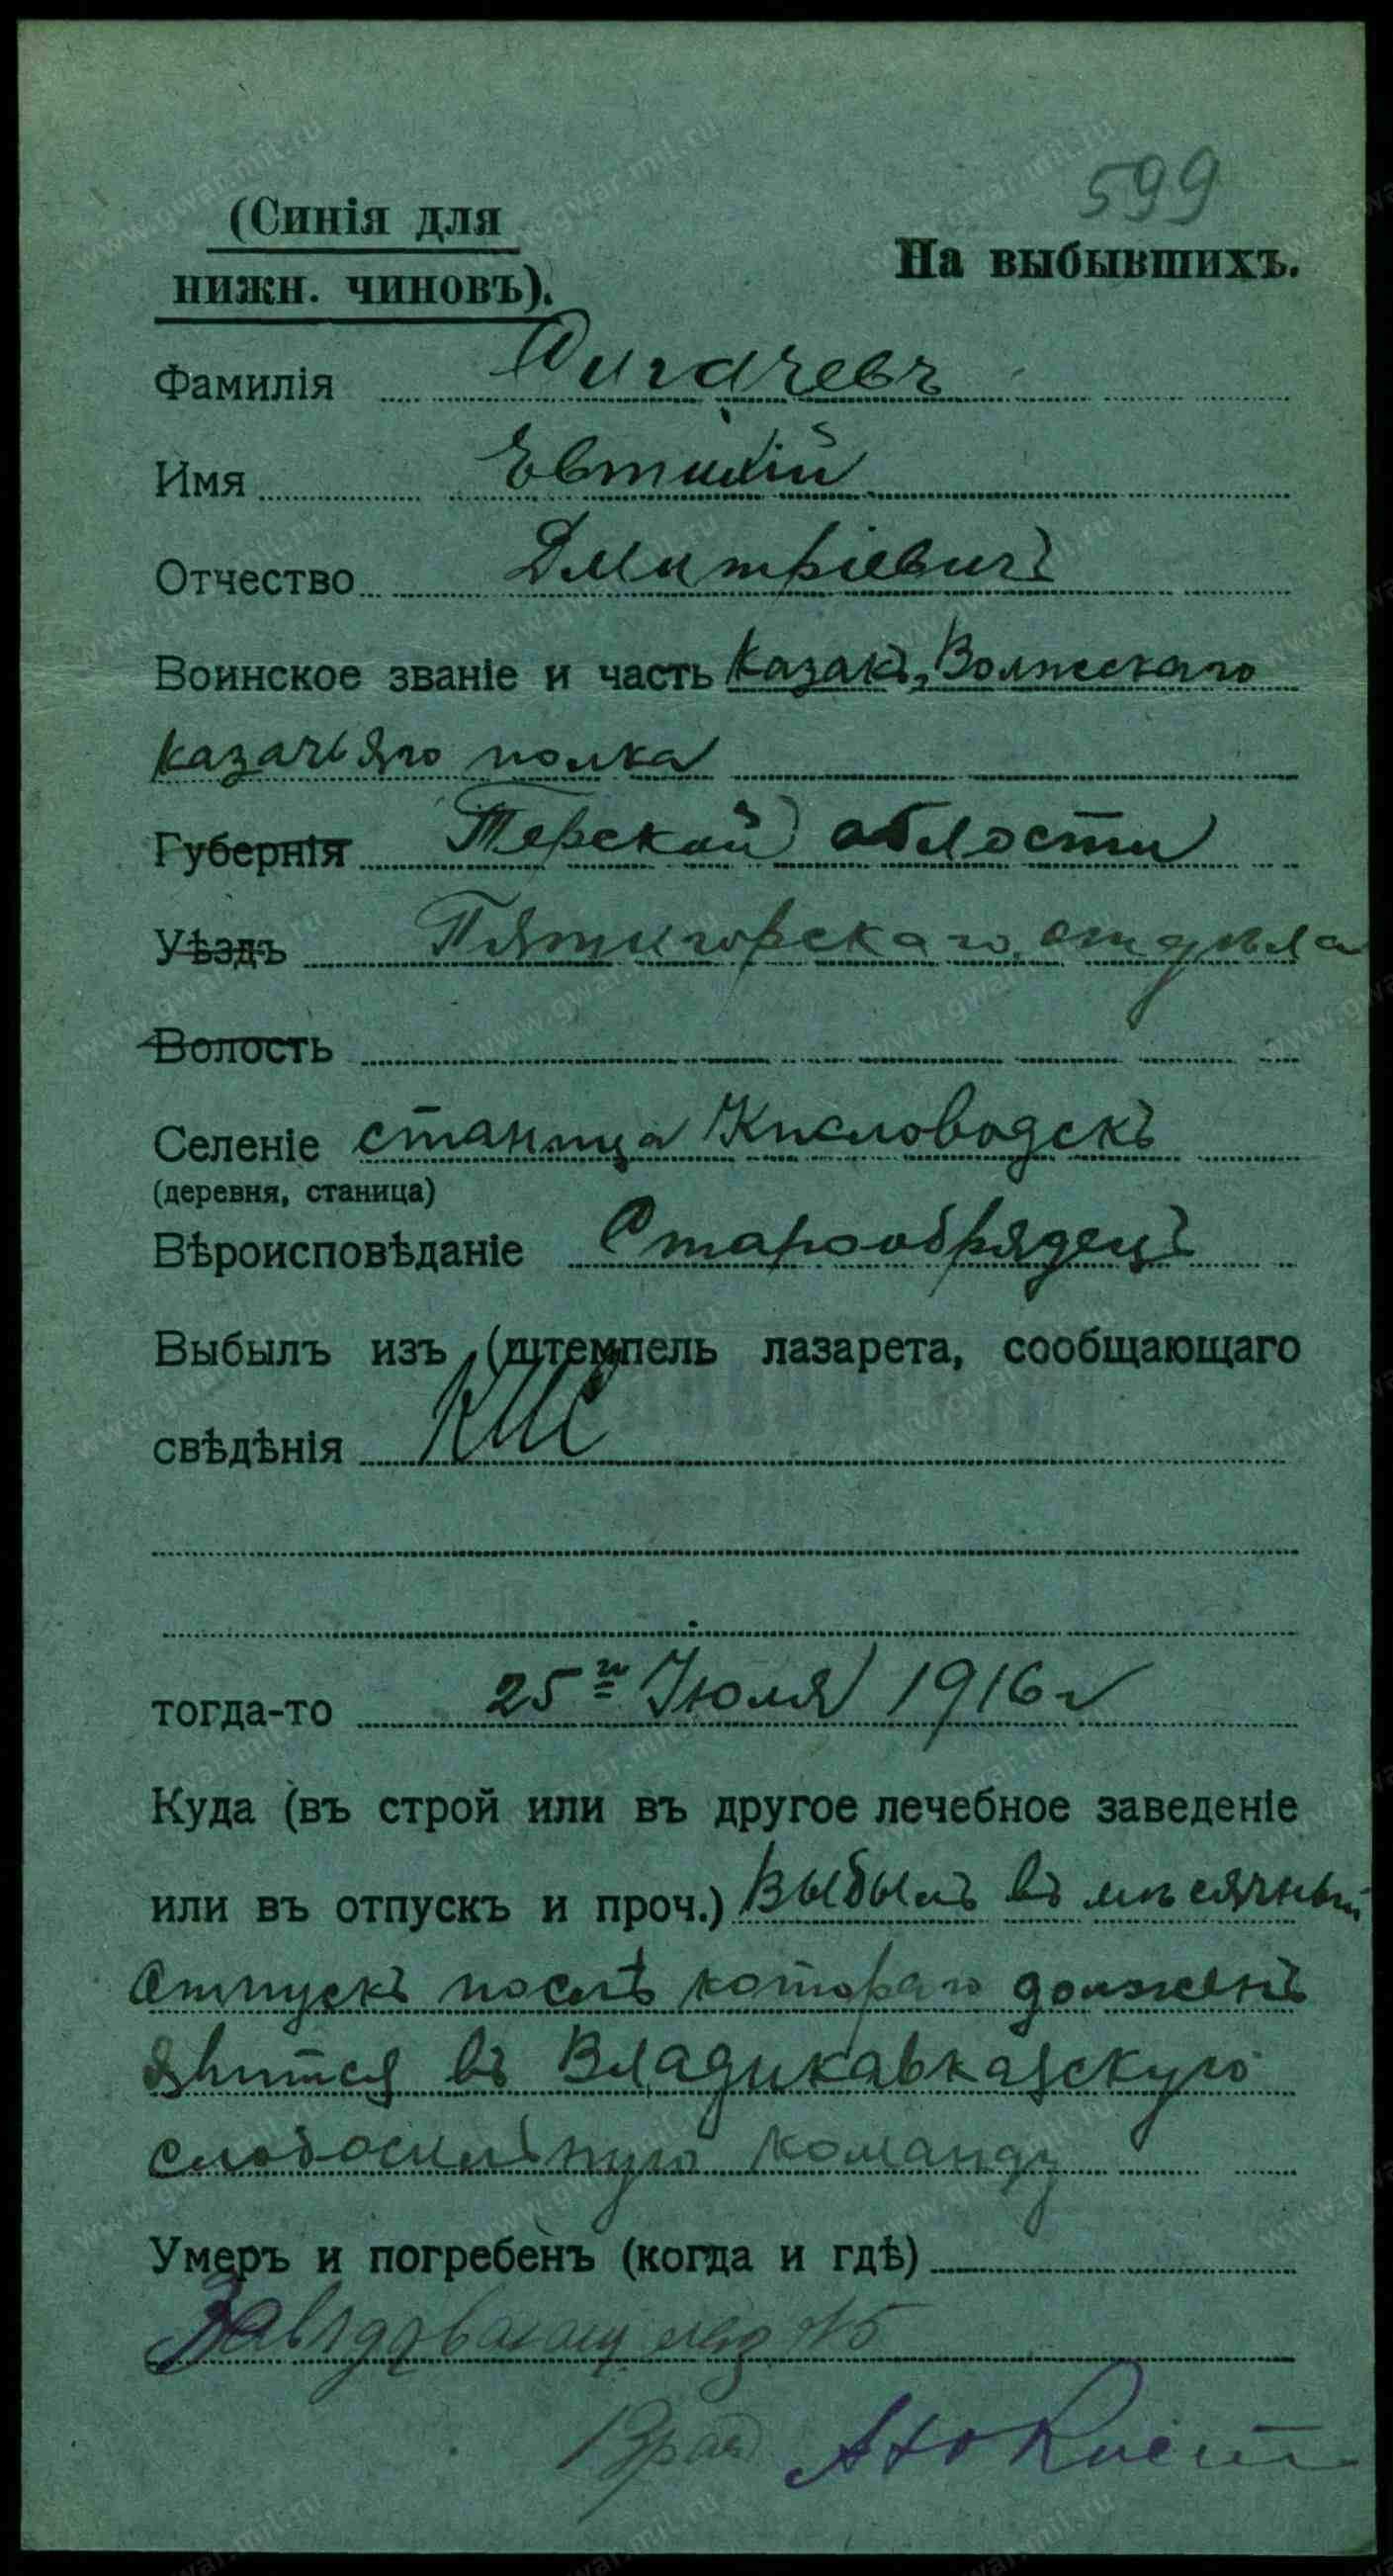 599
(Синія для
нижн. чиновъ).
На выбывшихъ.
Фамилія
Имя Евтихій
Отчество Дмитріевичъ
Воинское званіе и часть Казакъ, Волжскаго
казачьяго полка
Губернія Терской области
Уѣздъ Пятигорскаго отдѣла
Волость
Селеніе станица Кисловодскъ
(деревня, станица)
Вѣроисповѣданіе Старообрядецъ
Выбылъ изъ (штемпель лазарета, сообщающаго
свѣдѣнія
тогда-то 25го Іюля 1916 г
Куда (въ строй или въ другое лечебное заведеніе
или въ отпускъ и проч.) Выбылъ въ мѣсячный
отпускъ послѣ котораго долженъ
явится въ Владикавказскую
слабосильную команду
Умеръ и погребенъ (когда и гдѣ)
Врачъ